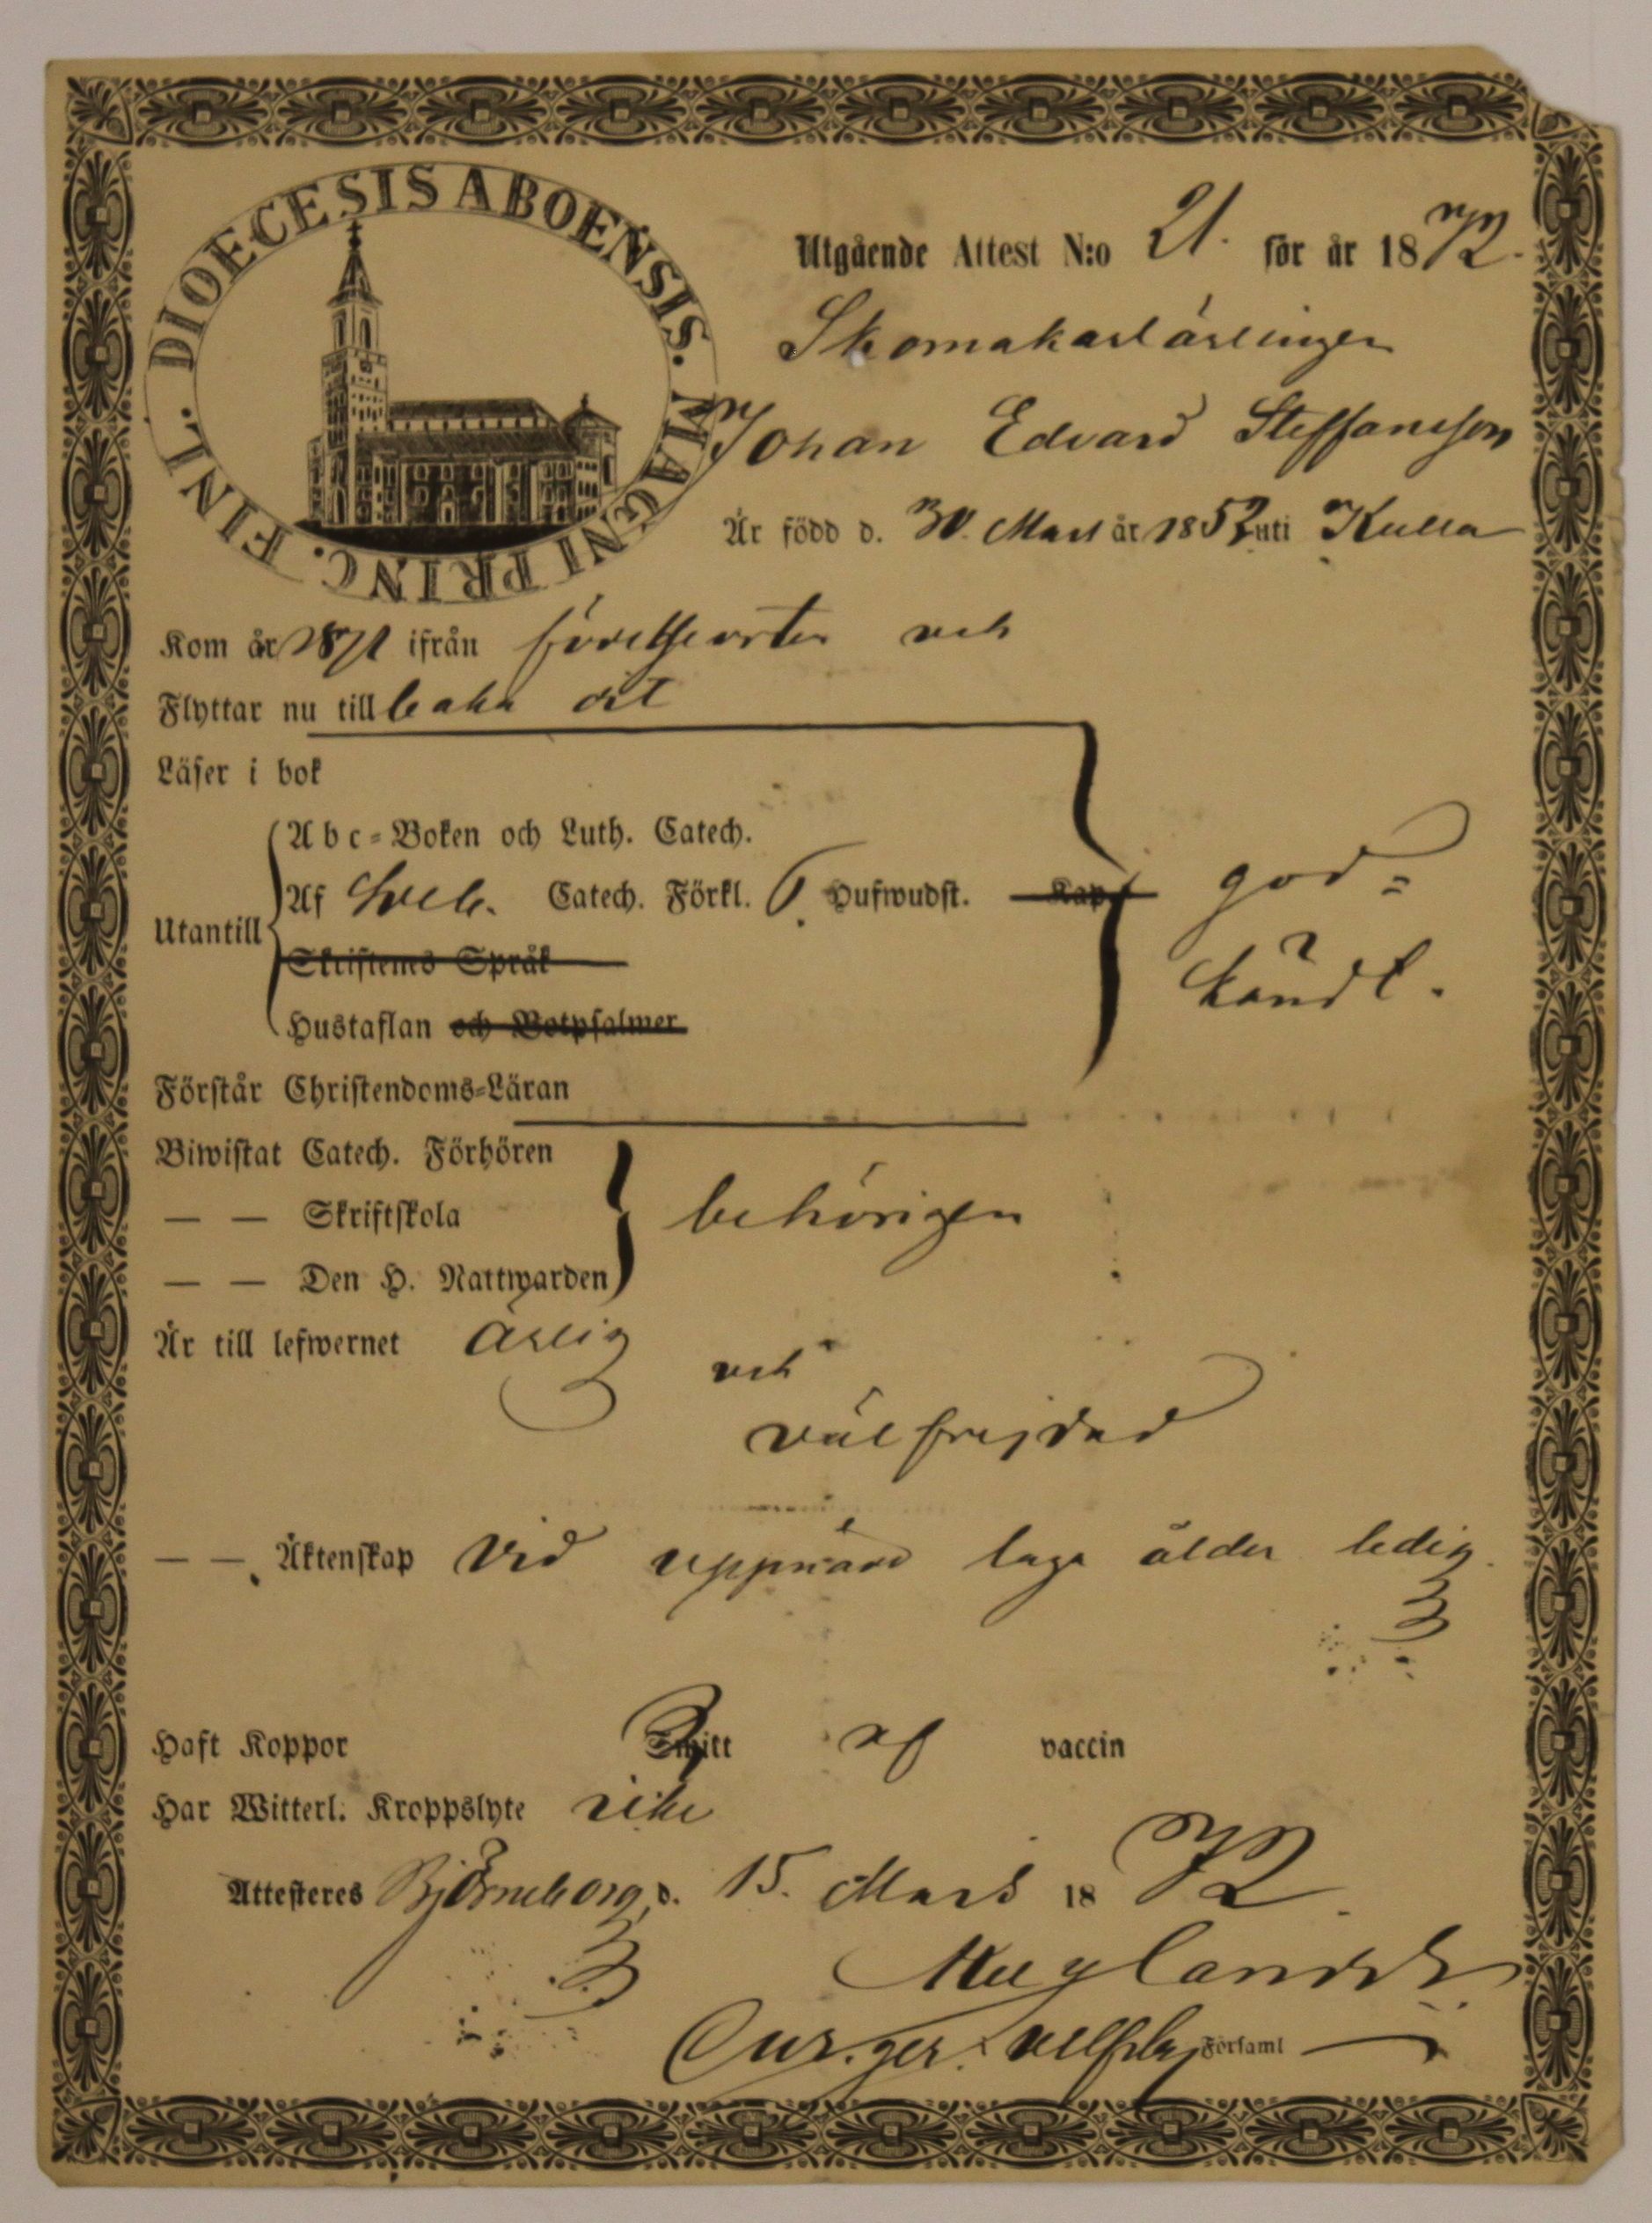 DIOECESIS ABOENSIS. MAGNI PRINC. FINL.
Utgående Attest N:o 21. för år 1872.
Skomakarlärlingen
Johan Edvard Steffansson
Är född d. 30. Mars år 1852 uti Kulla
Kom år 1871 ifrån och
Flyttar nu till baka dit
Läser i bok
Abc-Boken och Luth. Catech.
Af Sveb. Catech. Förkl. 6. Hufwudst. Kap.
god-
Utantill
Skriftenes Språk
känd t.
Hustaflan och Botpsalmer
Förstår Christendoms-Läran
Biwistat Catech. Förhören
— — Skriftskola
behörigen
— — Den H. Nattwarden
Är till lefwernet ärlig
och
välfrejdad
— — Äktenskap vid uppnådd laga ålder ledig.
Haft Koppor af vaccin
Har Witterl. Kroppslyte icke
Attesteres Björneborg, d. 15. Mars 1872.
Församl